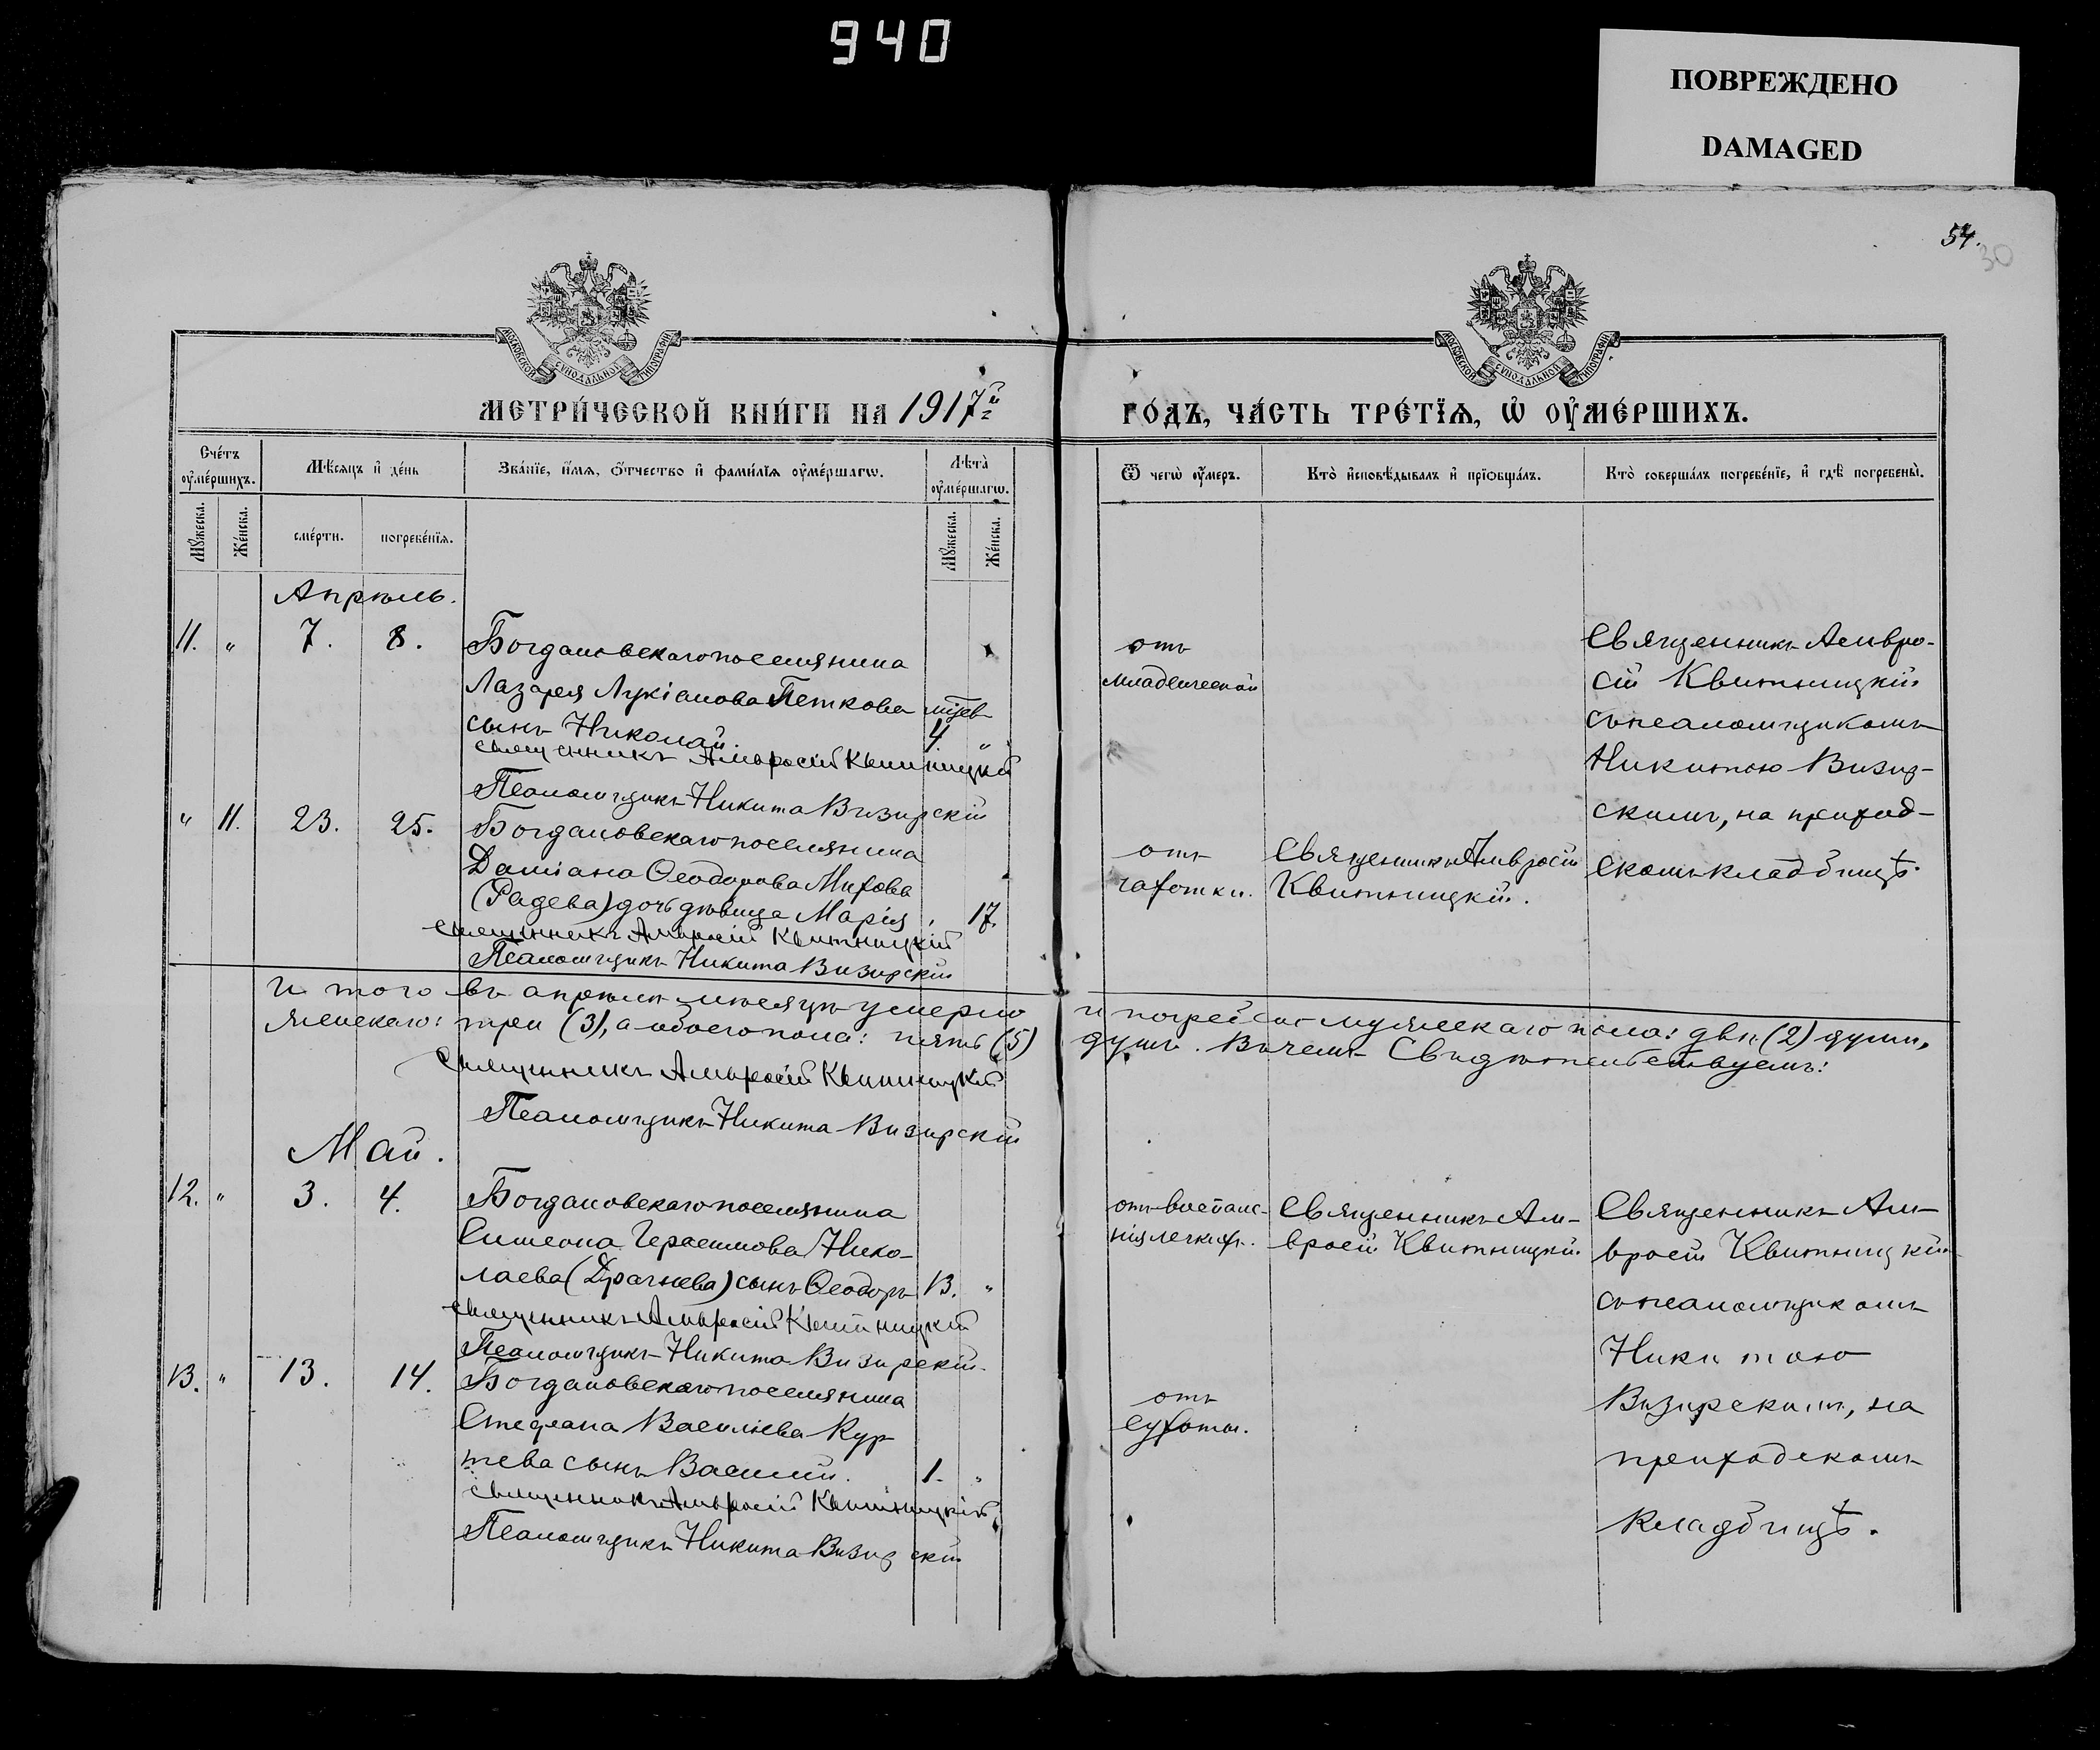 940
ПОВРЕЖДЕНО
DAMAGED
54.
30
МОСКОВСКОЙ СѴНОДАЛЬНОЙ ТИПОГРАФІИ
МОСКОВСКОЙ СѴНОДАЛЬНОЙ ТИПОГРАФІИ
МЕТРИ́ЧЕСКОЙ КНИ́ГИ НА 1917й
ГО́ДЪ, ЧА́СТЬ ТРЕ́ТІѦ, Ѡ҆ ОУ҆МЕ́РШИХЪ.
Сче́тъ оу҆ме́ршихъ.
Мѣ́сяцъ и҆ де́нь
Зва́нїе, и҆́мѧ, ѻ҆́тчество и҆ фами́лїѧ оу҆ме́ршагѡ.
Лѣ́та̀ оу҆ме́ршагѡ.
Ѿ чегѡ̀ оу҆́меръ.
Кто̀ и҆сповѣ́дывалъ и҆ прїѡбща́лъ.
Кто̀ соверша́лъ погребе́нїе, и҆ гдѣ̀ погребены̀.
Мꙋ́жеска.
Же́нска.
сме́рти.
погребе́нїѧ.
Мꙋ́жеска.
Же́нска.
Апрѣль.
11. " 7. 8. Богдановскаго поселянина
Лазаря Лукіанова Петкова мцев
сынъ Николай. 4 "
священникъ Амвросій Квитницкій
Псаломщикъ Никита Визирскій
отъ
младенческой
Священникъ Амвро-
сій Квитницкій
съ псаломщикомъ
Никитою Визир-
скимъ, на приход-
скомъ кладбищѣ.
" 11. 23. 25. Богдановскаго поселянина
Даміана Ѳеодорова Михова
(Радева) дочь дѣвица Марія , 17.
священникъ Амвросій Квитницкій
Псаломщикъ Никита Визирскій
отъ
чахотки.
Священникъ Амвросій
Квитницкій.
И того въ апрѣлѣ мѣсяцѣ умерло и погребено мужескаго пола: двѣ (2) души,
женскаго: три (3), а обоего пола: пять (5) душъ. Въ чемъ свидѣтельствуемъ:
Священникъ Амвросій Квитницкій
Псаломщикъ Никита Визирскій
Май.
12. " 3. 4. Богдановскаго поселянина
Симеона Герасимова Нико-
лаева (Драгнева) сынъ Ѳеодоръ 13. "
священникъ Амвросій Квитницкій
Псаломщикъ Никита Визирскій
отъ воспале-
нія легкихъ.
Священникъ Ам-
вросій Квитницкій
Священникъ Ам-
вросій Квитницкій
съ псаломщикомъ
Никитою
Визирскимъ, на
приходскомъ
кладбищѣ.
13. " 13. 14. Богдановскаго поселянина
Стефана Василіева Кур-
тева сынъ Василій. 1. "
священникъ Амвросій Квитницкій
Псаломщикъ Никита Визирскій
отъ
сухоты.